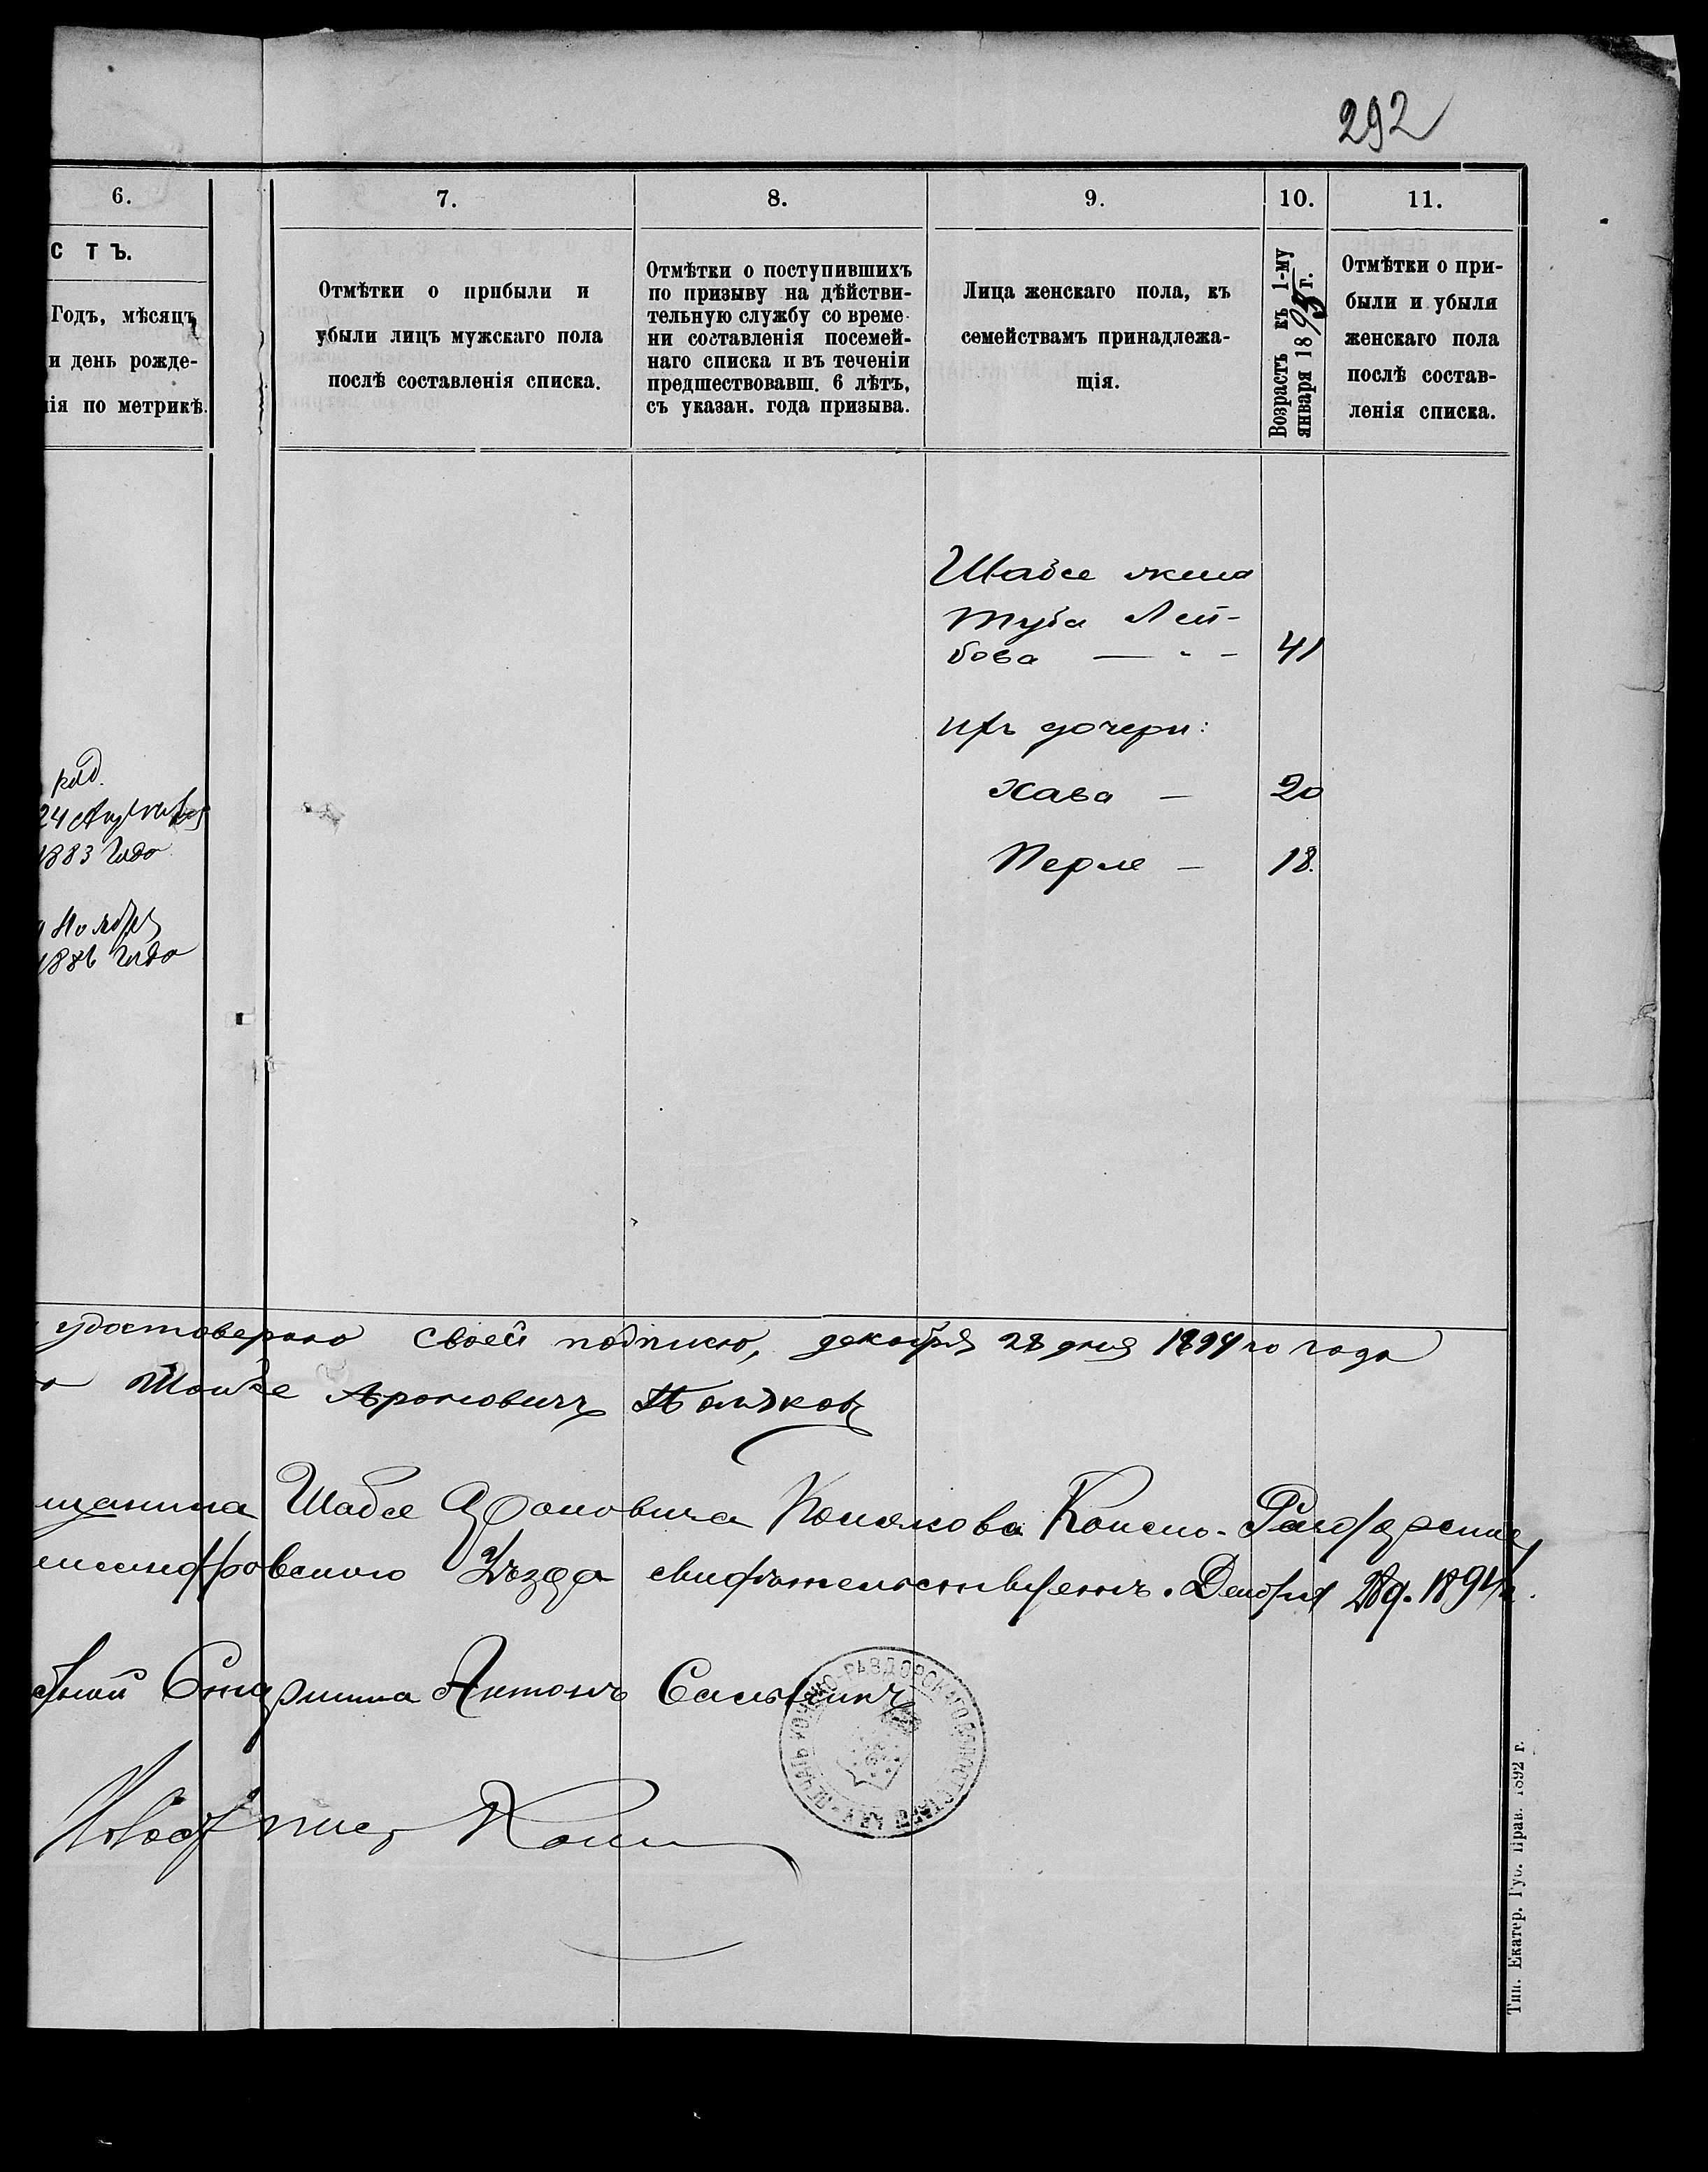 292
6.
7.
8.
9.
10.
11.
СТЪ.
Годъ, мѣсяцъ
и день рожде-
нія по метрикѣ.
Отмѣтки о прибыли и
убыли лицъ мужскаго пола
послѣ составленія списка.
Отмѣтки о поступившихъ
по призыву на дѣйстви-
тельную службу со време-
ни составленія посемей-
наго списка и въ теченіи
предшествовавш. 6 лѣтъ,
съ указан. года призыва.
Лица женскаго пола, къ
семействамъ принадлежа-
щія.
Возрастъ къ 1-му
января 1895 г.
Отмѣтки о при-
были и убыли
женскаго пола
послѣ состав-
ленія списка.
Шабсе жена
Туба Лей-
бова — 41
ихъ дочери:
Хава — 20
Перле — 18.
род.
24 Августа
1883 года
Ноября
1886 года
удостоверяю своей подписю, декабря 28 дня 1894 го года
Ароновичъ
щанина Шабсе Ароновича Конско-Раздорскіе
Уѣзда Декабря 28 д. 1894 г.
Старшина Антонъ
писарь
ПЕЧАТЬ КОНСКО-РАЗДОРСКАГО ВОЛОСТНАГО
Тип. Екатер. Губ. Прав. 1892 г.